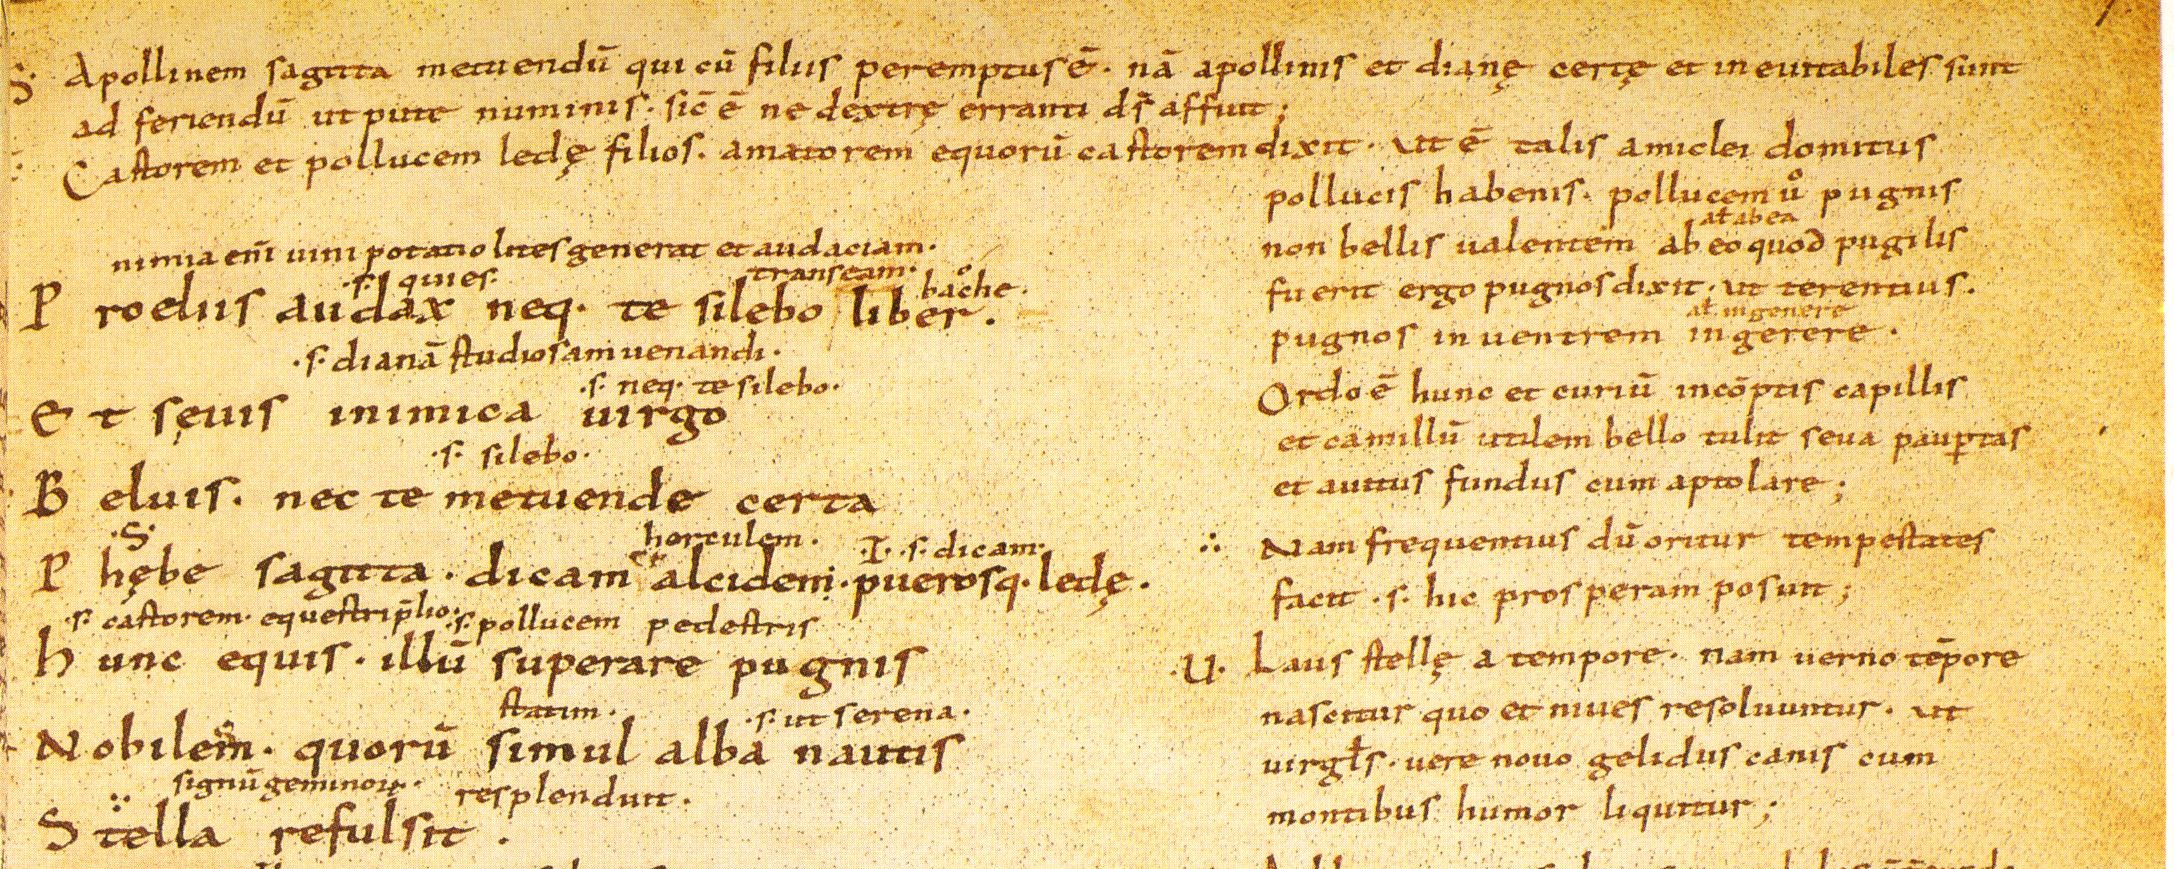 S· Apollinem sagitta metuendū qui cū filius peremptus ē· nā apollinis et dianę certę et ineuitabiles sunt
ad feriendū ut pute numinis· sic̄ ē ne dextrę erranti ds̄ affuit;
Castorem et pollucem ledę filios· amatorem equorū castorem dixit· ut ē talis amiclei domitus
pollucis habenis· pollucem uͦ pugnis
at abea
non bellis ualentem ab eo quod pugilis
fuerit ergo pugnos dixit· ut terentius·
at ingenere
pugnos in uentrem ingerere·
Ordo ē hunc et curiū incōptis capillis
et camillū utilem bello tulit seua paup̱tas
et auitus fundus cum apto lare;
∴ Nam frequentius dū oritur tempestates
facit ·s· hic prosperam posuit;
·U· Laus stellę a tempore· nam uerno tēpore
nascitur quo et niues resoluuntur· ut
uirgƚs· uere nouo gelidus canis cum
montibus humor liquitur;
nimia em̄ uini potatio lites generat et audaciam·
·s· quies· transeam· oͦ bache·
Proeliis audax neq· te silebo liber·
·s· dianā studiosam uenandi·
·s· neq· te silebo·
Et sęuis inimica uirgo
·s· silebo·
Beluis· nec te metuende certa
·S· horculem· ·I· ·s· dicam·
Phębe sagitta· dicam alcidem· puerosq· ledę·
·s· castorem· equestri p̄lio· ·s· pollucem pedestris
Hunc equis· illū superare pugnis
statim· ·s· ut serena·
Nobilem· quorū simul alba nautis
signū geminoꝝ· resplenduit·
Stella refulsit·